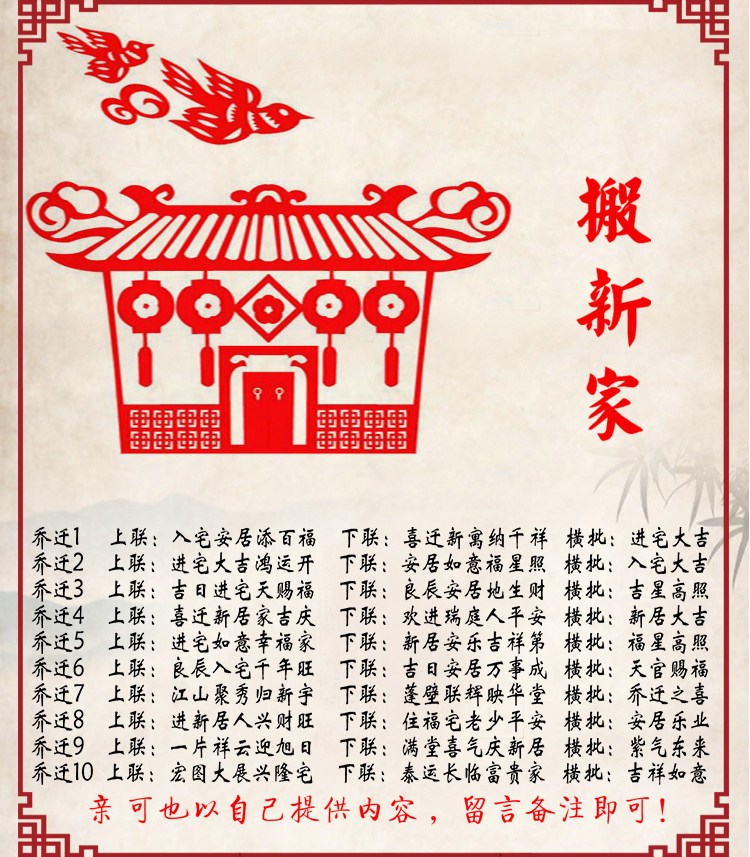 搬新家
乔迁1 上联：入宅安居添百福 下联：喜迁新寓纳千祥 横批：进宅大吉
乔迁2 上联：进宅大吉鸿运开 下联：安居如意福星照 横批：入宅大吉
乔迁3 上联：吉日进宅天赐福 下联：良辰安居地生财 横批：吉星高照
乔迁4 上联：喜迁新居家吉庆 下联：欢进瑞庭人平安 横批：新居大吉
乔迁5 上联：进宅如意幸福家 下联：新居安乐吉祥第 横批：福星高照
乔迁6 上联：良辰入宅千年旺 下联：吉日安居万事成 横批：天官赐福
乔迁7 上联：江山聚秀归新宇 下联：蓬壁联辉映华堂 横批：乔迁之喜
乔迁8 上联：进新居人兴财旺 下联：住福宅老少平安 横批：安居乐业
乔迁9 上联：一片祥云迎旭日 下联：满堂喜气庆新居 横批：紫气东来
乔迁10 上联：宏图大展兴隆宅 下联：泰运长临富贵家 横批：吉祥如意
亲可也以自己提供内容，留言备注即可！